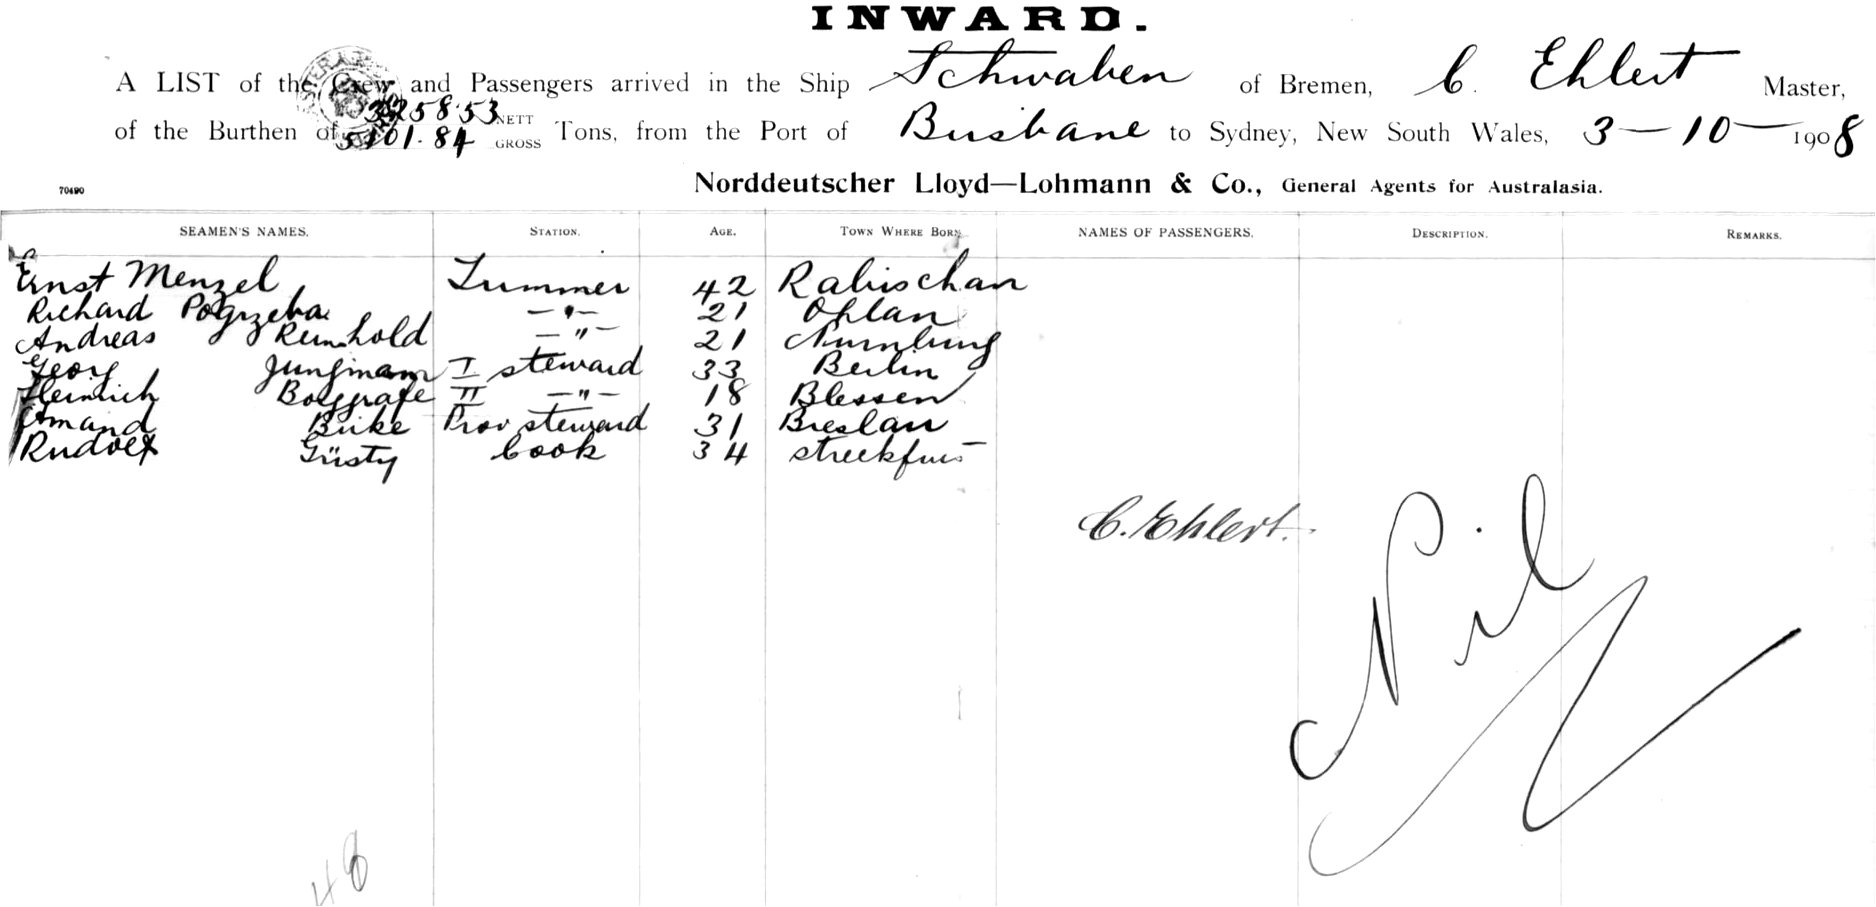 INWARD.
A LIST of the Crew and Passengers arrived in the Ship Schwaben of Bremen, C. Ehlert Master,
of the Burthen of 3258.53 NETT 5101.84 GROSS Tons, from the Port of Brisbane to Sydney, New South Wales, 3-10-1908
70490
Norddeutscher Lloyd—Lohmann & Co., General Agents for Australasia.
SEAMEN'S NAMES. STATION. AGE. TOWN WHERE BORN. NAMES OF PASSENGERS. DESCRIPTION. REMARKS.
Ernst Menzel 42 Rabischau
Richard Pogrzeba -"- 21 Ohlau
Andreas Reinhold -"- 21 Nurnburg
Georg Jungmann I steward 33 Berlin
Heinrich II -"- 18 Blessen
Amand Birke Prov steward 31 Breslau
Rudolf Güsty Cook 34
C. Ehlert.
Nil
48